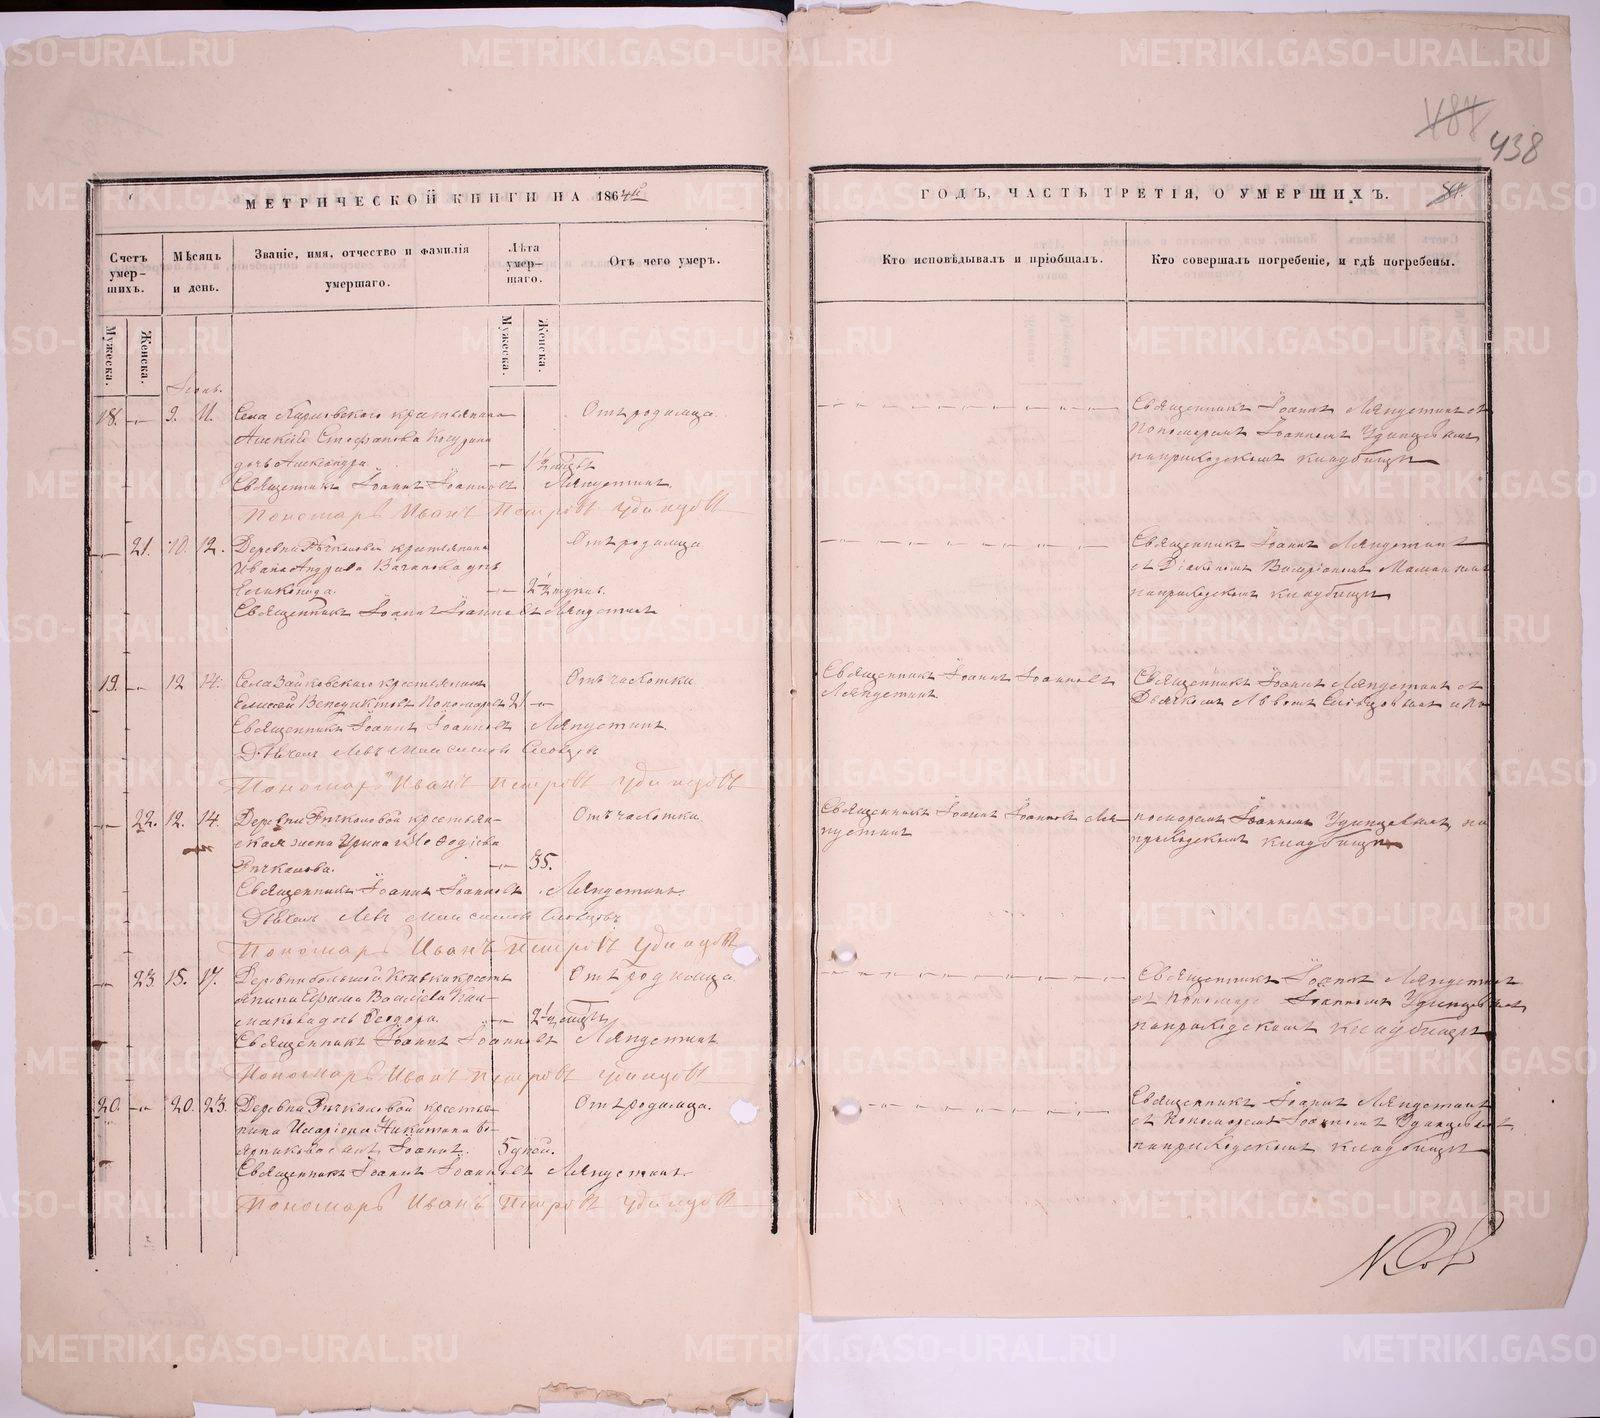 487
438
МЕТРИЧЕСКОЙ КНИГИ НА 1864й
ГОДЪ, ЧАСТЬ ТРЕТІЯ, О УМЕРШИХЪ.
Счетъ умер-шихъ.
Мѣсяцъ и день.
Званіе, имя, отчество и фамилія умершаго.
Лѣта умер-шаго.
Отъ чего умеръ.
Кто исповѣдывалъ и пріобщалъ.
Кто совершалъ погребеніе, и гдѣ погребены.
Мужеска.
Женска.
Мужеска.
Женска.
18. 9. 11. Села крестьянина
Алексѣя Стефанова
дочь Александра
Священникъ Іоаннъ Іоанновъ Ляпустинъ
Пономарь Иванъ Петровъ Удинцовъ
Отъ родимца.
Священникъ Іоаннъ Ляпустинъ съ
Пономаремъ Іоанномъ Удинцовымъ
на приходскомъ кладбищѣ
21. 10. 12. Деревни Речкаловой крестьянина
Ивана Андреева дочь
Священникъ Іоаннъ Іоанновъ Ляпустинъ
Отъ родимца
Священникъ Іоаннъ Ляпустинъ
съ Діакономъ
на приходскомъ кладбищѣ
19. 12 14. Села Зайковскаго крестьянинъ
Елисей Венедиктовъ Пономаревъ 21
Священникъ Іоаннъ Іоанновъ Ляпустинъ.
Дьячекъ Левъ Словцовъ
Пономарь Иванъ Петровъ Удинцовъ
Отъ чахотки.
Священникъ Іоаннъ Іоанновъ
Ляпустинъ
Священникъ Іоаннъ Ляпустинъ съ
Дьячкомъ Львомъ Словцовымъ и по
22. 12. 14. Деревни Речкаловой крестьян-
ская жена Ирина Меѳодіева
Речкалова. 35.
Священникъ Іоаннъ Іоанновъ Ляпустинъ.
Дьячекъ Левъ Словцовъ
Пономарь Иванъ Петровъ Удинцовъ
Отъ чахотки.
Священникъ Іоаннъ Іоанновъ Ля-
пустинъ
номаремъ Іоанномъ Удинцовымъ, на
приходскомъ кладбищѣ
23 15. 17. Деревни большой кресть
янина Ефима Василева
дочь Ѳеодора.
Священникъ Іоаннъ Іоанновъ Ляпустинъ
Пономарь Иванъ Петровъ Удинцовъ
Отъ родимца.
Священникъ Іоаннъ Ляпустинъ
съ Пономаремъ Іоанномъ Удинцовымъ
на приходскомъ кладбищѣ
20. 20. 23. Деревни Речкаловой крестья-
нина Иларіона Никитина
сынъ Іоаннъ. 5 дней.
Священникъ Іоаннъ Іоанновъ Ляпустинъ.
Пономарь Иванъ Петровъ Удинцовъ
Отъ родимца.
Священникъ Іоаннъ Ляпустинъ
съ Пономаремъ Іоанномъ Удинцовымъ
на приходскомъ кладбищѣ
METRIKI.GASO-URAL.RU